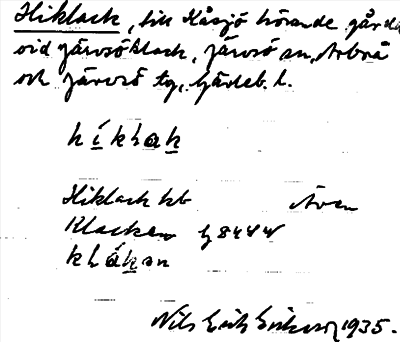 Hiklack, till Kåsjö hörande gårdar
vid Järvsöklack, Järvsö sn, Arbrå
och Järvsö tg, Gävleb. l.
híkhak
Hiklack kb Även
Klacken
khákan
Nils Erik Eriksson 1935.